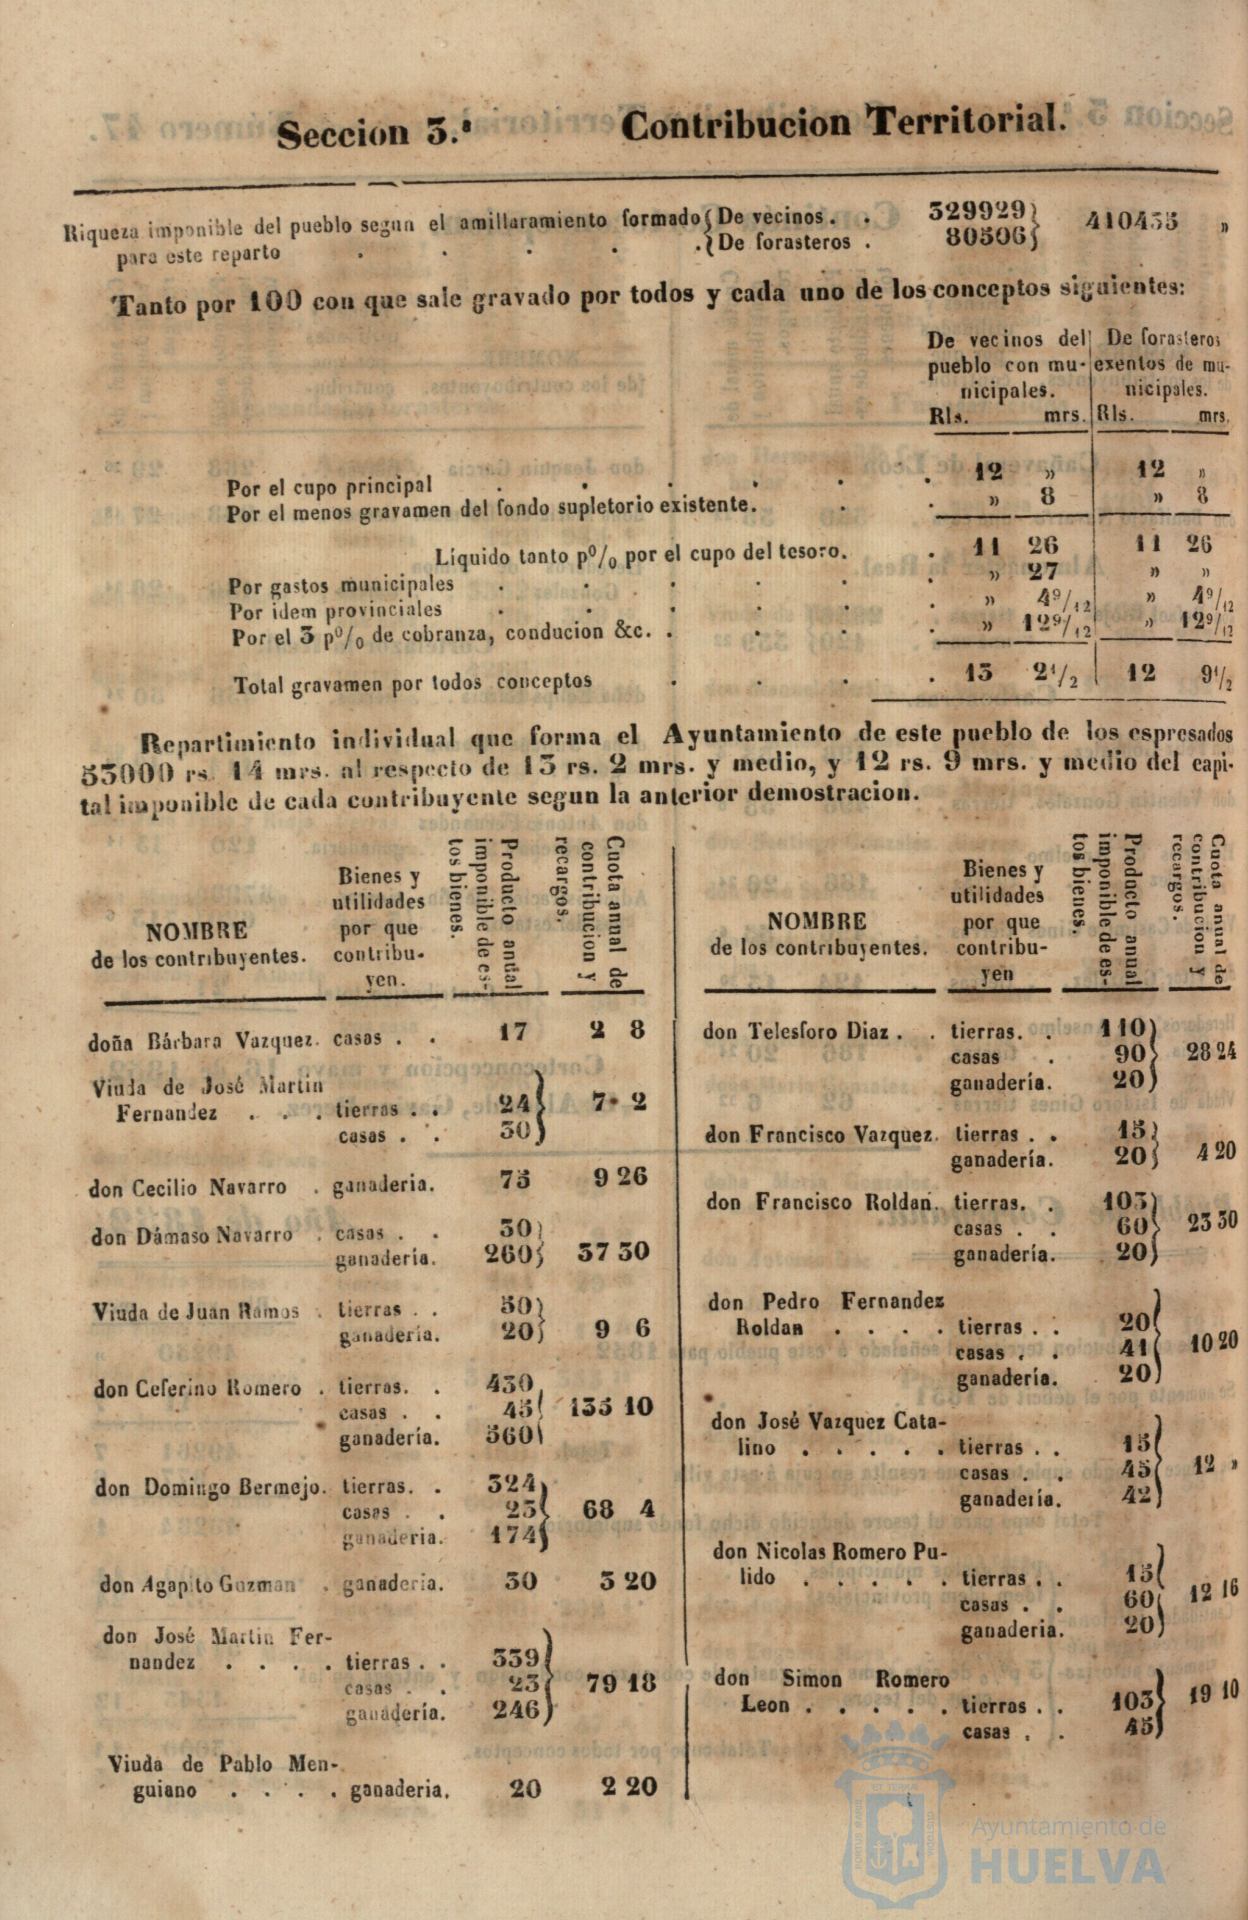 Seccion 3.ª Contribucion Territorial.
Riqueza imponible del pueblo segun el amillaramiento formado { De vecinos . . 329929 } 410435 »
para este reparto . . . . . { De forasteros . 80506 }
Tanto por 100 con que sale gravado por todos y cada uno de los conceptos siguientes:
De vecinos del De forasteros
pueblo con mu- exentos de mu-
nicipales. nicipales.
Rls. mrs. Rls. mrs.
Por el cupo principal . . . . . . 12 » 12 »
Por el menos gravamen del fondo supletorio existente. . . » 8 » 8
Líquido tanto p⁰/₀ por el cupo del tesoro. . 11 26 11 26
Por gastos municipales . . . . . . » 27 » »
Por idem provinciales . . . . . . » 4⁹/₁₂ » 4⁹/₁₂
Por el 3 p⁰/₀ de cobranza, conducion &c. . . . . » 12⁹/₁₂ » 12⁹/₁₂
Total gravamen por todos conceptos . . . . 13 2¹/₂ 12 9¹/₂
Repartimiento individual que forma el Ayuntamiento de este pueblo de los espresados
53000 rs. 14 mrs. al respecto de 13 rs. 2 mrs. y medio, y 12 rs. 9 mrs. y medio del capi-
tal imponible de cada contribuyente segun la anterior demostracion.
NOMBRE
de los contribuyentes.
Bienes y
utilidades
por que
contribu-
yen.
Producto anual
imponible de es-
tos bienes.
Cuota anual de
contribucion y
recargos.
doña Bárbara Vazquez. casas . . 17 2 8
Viuda de José Martin
Fernandez . . . tierras . . 24 } 7 2
casas . . 30 }
don Cecilio Navarro . ganaderia. 75 9 26
don Dámaso Navarro . casas . . 30 }
ganadería. 260 } 37 30
Viuda de Juan Ramos . tierras . . 50 }
ganadería. 20 } 9 6
don Ceferino Romero . tierras. . 430
casas . . 45 } 135 10
ganadería. 560
don Domingo Bermejo. tierras. . 324
casas . . 23 } 68 4
ganaderia. 174
don Agapito Guzman . ganaderia. 30 3 20
don José Martin Fer-
nandez . . . . tierras . . 339
casas . . 23 } 79 18
ganadería. 246
Viuda de Pablo Men-
guiano . . . . ganaderia. 20 2 20
NOMBRE
de los contribuyentes.
Bienes y
utilidades
por que
contribu-
yen
Producto anual
imponible de es-
tos bienes.
Cuota anual de
contribucion y
recargos.
don Telesforo Diaz . . tierras. . 110
casas . 90 } 28 24
ganadería. 20
don Francisco Vazquez. tierras . . 15 }
ganadería. 20 } 4 20
don Francisco Roldan. tierras. . 103
casas . . 60 } 23 30
ganadería. 20
don Pedro Fernandez
Roldan . . . . tierras . . 20
casas . . 41 } 10 20
ganadería. 20
don José Vazquez Cata-
lino . . . . . tierras . . 15
casas . . 45 } 12 »
ganadería. 42
don Nicolas Romero Pu-
lido . . . . . tierras . . 15
casas . . 60 } 12 16
ganaderia. 20
don Simon Romero
Leon . . . . . tierras . . 103 } 19 10
casas . . 45 }
Ayuntamiento de
HUELVA